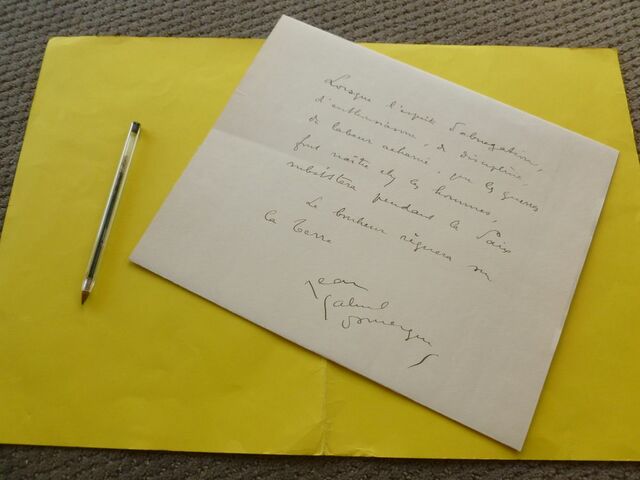 Lorsque l'esprit d'abnégation,
d'enthousiasme, de discipline,
de labeur acharné, que les guerres
font naître chez les hommes,
subsistera pendant la Paix
Le bonheur règnera sur
la Terre
Jean
Gabriel
Domergue